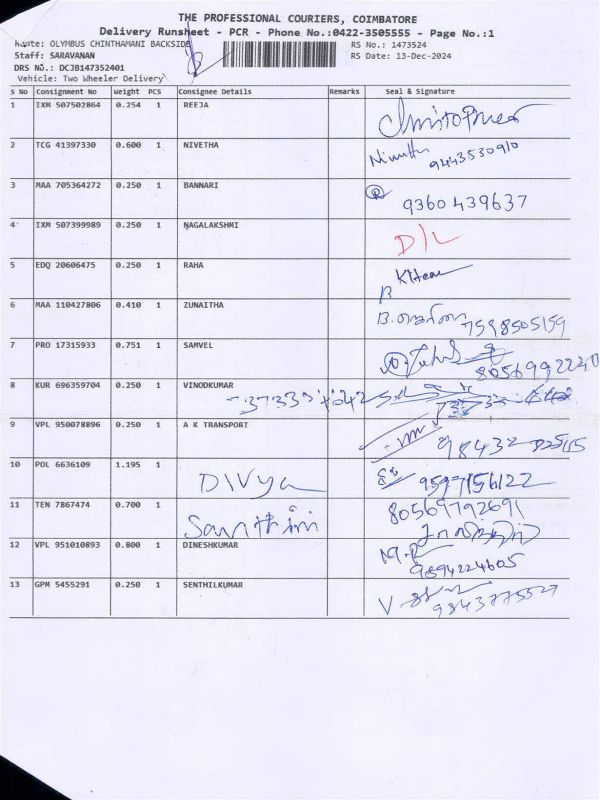 THE PROFESSIONAL COURIERS, COIMBATORE
Delivery Runsheet - PCR - Phone No.:0422-3505555 - Page No.:1
Route: OLYMBUS CHINTHAMANI BACKSIDE RS No.: 1473524
Staff: SARAVANAN RS Date: 13-Dec-2024
DRS No.: DCJB147352401
Vehicle: Two Wheeler Delivery
S No Consignment No Weight PCS Consignee Details Remarks Seal & Signature
1 IXM 507502864 0.254 1 REEJA Christopher
2 TCG 41397330 0.600 1 NIVETHA Nivetha
9443530910
3 MAA 705364272 0.250 1 BANNARI
9360439637
4 IXM 507399989 0.250 1 NAGALAKSHMI D/L
5 EDQ 20606475 0.250 1 RAHA
6 MAA 110427806 0.410 1 ZUNAITHA B.
7598505159
7 PRO 17315933 0.751 1 SAMVEL
8056992240
8 KUR 696359704 0.250 1 VINODKUMAR
9 VPL 950078896 0.250 1 A K TRANSPORT
98432
10 POL 6636109 1.195 1 Divya 9597156122
11 TEN 7867474 0.700 1 80569792691
12 VPL 951010893 0.800 1 DINESHKUMAR
9894224605
13 GPM 5455291 0.250 1 SENTHILKUMAR V
9843775527